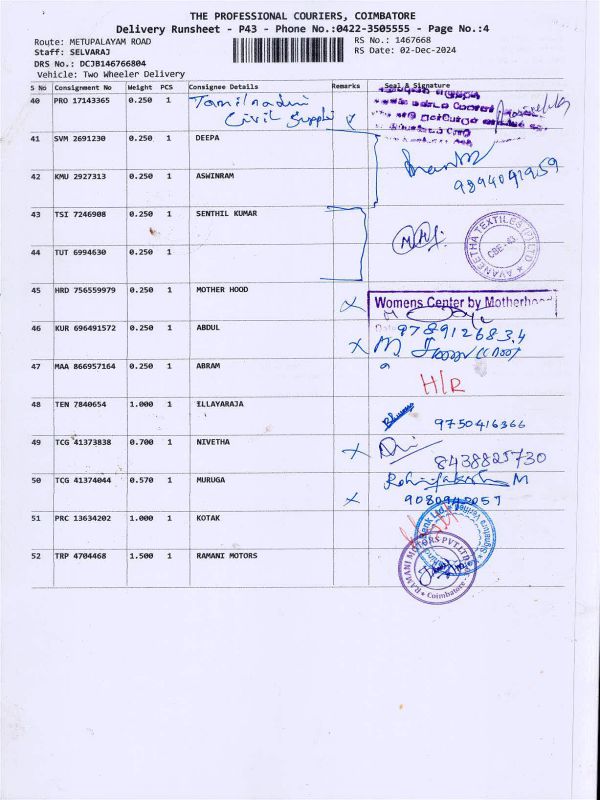 THE PROFESSIONAL COURIERS, COIMBATORE
Delivery Runsheet - P43 - Phone No.:0422-3505555 - Page No.:4
Route: METUPALAYAM ROAD
Staff: SELVARAJ
DRS No.: DCJB146766804
Vehicle: Two Wheeler Delivery
RS No.: 1467668
RS Date: 02-Dec-2024
S No Consignment No Weight PCS Consignee Details Remarks Seal & Signature
40 PRO 17143365 0.250 1 Tamilnadu
Civil Suppli
41 SVM 2691230 0.250 1 DEEPA
42 KMU 2927313 0.250 1 ASWINRAM 9894091959
43 TSI 7246908 0.250 1 SENTHIL KUMAR
AVANEETHA TEXTILES (P) LTD
CBE-43
44 TUT 6994630 0.250 1
45 HRD 756559979 0.250 1 MOTHER HOOD
Womens Center by Motherhood
46 KUR 696491572 0.250 1 ABDUL
9789126834
47 MAA 866957164 0.250 1 ABRAM
H/R
48 TEN 7840654 1.000 1 ILLAYARAJA
9750416366
49 TCG 41373838 0.700 1 NIVETHA
8438825730
50 TCG 41374044 0.570 1 MURUGA
9080942057
51 PRC 13634202 1.000 1 KOTAK
Bank Ltd
52 TRP 4704468 1.500 1 RAMANI MOTORS
RAMANI MOTORS PVT LTD
Coimbatore